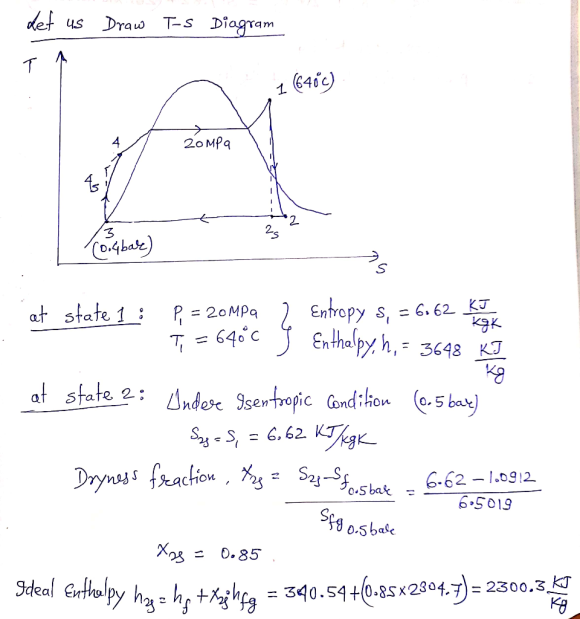 Let us Draw T-S Diagram
T
1 (640°C)
4
20MPa
4s
3
2s
2
(0.4bar)
S
at state 1 : P₁ = 20MPa } Entropy s₁ = 6.62 KJ/KgK
T₁ = 640°C } Enthalpy, h₁ = 3648 KJ/Kg
at state 2 : Under Isentropic Condition (0.5 bar)
S₂s = S₁ = 6.62 KJ/KgK
Dryness fraction, X₂s = (S₂s - Sf 0.5bar) / (Sfg 0.5bar) = (6.62 - 1.0912) / 6.5019
X₂s = 0.85
Ideal Enthalpy h₂s = hf + X₂s hfg = 340.54 + (0.85 x 2304.7) = 2300.3 KJ/Kg